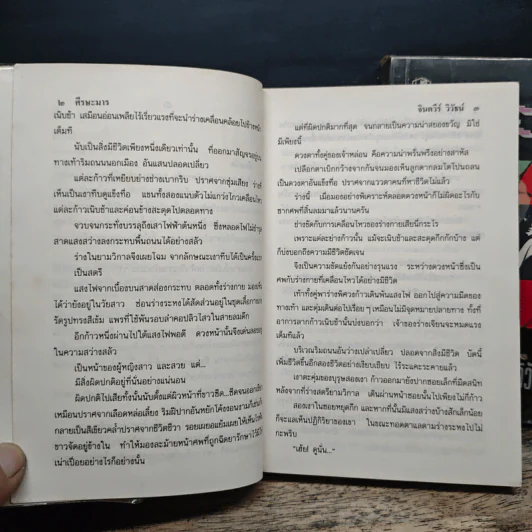 ๒ ศีรษะมาร
เนิบช้า เสมือนอ่อนเพลียไร้เรี่ยวแรงที่จะนำร่างเคลื่อนคล้อยไปข้างหน้า
เต็มที
นับเป็นสิ่งมีชีวิตเพียงหนึ่งเดียวเท่านั้น ที่ออกมาสัญจรอยู่บน
ทางเท้าริมถนนนอกเมือง อันแสนปลอดเปลี่ยว
แต่ละก้าวที่เหยียบย่างช่างเบากริบ ปราศจากสุ้มเสียง ร่าง
เห็นเป็นเงาทึบดูแข็งทื่อ แขนทั้งสองแนบตัวไม่แกว่งไกวเคลื่อนไหว
แต่ละก้าวเนิบช้าและค่อนข้างสะดุดไปตลอดทาง
จวบจนกระทั่งบรรลุถึงเสาไฟฟ้าต้นหนึ่ง ซึ่งหลอดไฟไม่ชำรุด
สาดแสงสว่างลงกระทบพื้นถนนได้อย่างสลัว
ร่างในยามวิกาลจึงเผยโฉม จากลักษณะเงาทึบได้เป็นครั้งแรก
เป็นสตรี
แสงไฟจากเบื้องบนสาดส่องกระทบ ตลอดทั้งร่างกาย มองเห็น
ได้ว่ายังอยู่ในวัยสาว ซ่อนร่างระหงได้สัดส่วนอยู่ในชุดเสื้อกางเกง
รัดรูปทรงสีเข้ม แพรที่ใช้พันรอบลำคอปลิวไสวในสายลมดึก
อีกก้าวหนึ่งผ่านไปใต้แสงไฟพอดี ดวงหน้านั้นจึงเด่นออกมา
ในความสว่างสลัว
เป็นหน้าของผู้หญิงสาว และสวย แต่...
มีสิ่งผิดปกติอยู่ที่นั่นอย่างแน่นอน
ผิดปกติไปเสียทั้งนั้นนับตั้งแต่ผิวหน้าที่ขาวซีด...ซีดจน
เหมือนปราศจากเลือดหล่อเลี้ยง ริมฝีปากอันหยักโค้งงอนงาม
กลายเป็นสีเขียวคล้ำปราศจากชีวิตชีวา รอยเผยอแย้มเผยให้เห็นไรฟัน
ขาวจัดอยู่ข้างใน ทำให้มองละม้ายหน้าศพที่ถูกฉีดยารักษาไว้
เน่าเปื่อยอย่างไรก็อย่างนั้น
จินตวีร์ วิวัธน์ ๓
แต่ที่ผิดปกติมากที่สุด จนกลายเป็นความน่าสยองขวัญ มิใช่
มีเพียงนี้
ดวงตาทั้งคู่ของเจ้าหล่อน คือความน่าพรั่นพรึงอย่างสาหัส
เปลือกตาเบิกกว้างจากกันจนมองเห็นลูกตากลมโตโปนถลน
เป็นดวงตาอันแข็งทื่อ ปราศจากแววตาคนที่หาชีวิตไม่แล้ว
ร่างนี้ เมื่อมองอย่างพิเคราะห์ตลอดดวงหน้าก็ไม่ผิดอะไรกับ
ซากศพที่สิ้นลมมาแล้วนานครัน
ช่างขัดกับการเคลื่อนไหวของร่างกายเสียนี่กระไร
เพราะแต่ละย่างก้าวนั้น แม้จะเนิบช้าและสะดุดกึกกักบ้าง แต่
ก็บ่งบอกถึงความมีชีวิตชัดเจน
จึงเป็นความขัดแย้งกันอย่างรุนแรง ระหว่างดวงหน้าซึ่งเป็น
ศพกับร่างกายที่เคลื่อนไหวได้อย่างมีชีวิต
เท้าทั้งคู่พาร่างพิศวงก้าวเดินพ้นแสงไฟ ออกไปสู่ความมืดของ
ทางเท้า และคุ่มเดินต่อไปเรื่อย ๆ เหมือนไม่มีจุดหมายปลายทาง ทั้งที่
อาการลากก้าวเนิบช้านั้นบ่งบอกว่า เจ้าของร่างเจียนจะหมดแรง
เต็มทีแล้ว
บริเวณริมถนนอันว่างเปล่าเปลี่ยว ปลอดจากสิ่งมีชีวิต บัดนี้
เพิ่มชีวิตขึ้นอีกสองชีวิตอย่างเงียบเชียบ ไร้ระแคะระคายแล้ว
เงาตะคุ่มของบุรุษสองเงา ก้าวออกมายังปากซอยเล็กที่มืดสนิท
หลังจากที่ร่างสตรียามวิกาล เดินผ่านหน้าซอยนั้นไปเพียงไม่กี่ก้าว
สองเงาในซอยหยุดกึก และหากที่นั้นมีแสงสว่างบ้างสักเล็กน้อย
ก็จะแลเห็นปฏิกิริยาของเงา ในขณะทอดตาแลตามร่างระหงไปไม่
กะพริบ
"เฮ้ย! ดูนั่น..."